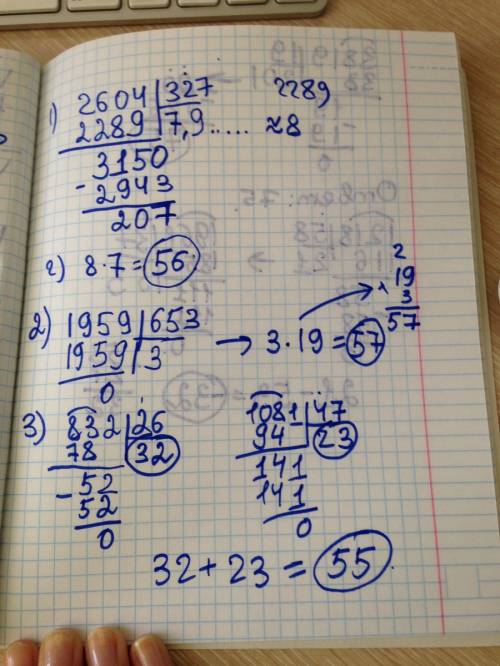 1) 2604 | 327
2289 | 7,9..... ≈8
2289
3150
- 2943
207
г) 8·7 = 56
2) 1959 | 653
1959 | 3
0
→ 3·19 = 57
2
× 19
3
57
3) 832 | 26
78 | 32
- 52
52
0
1081 | 47
94 | 23
141
141
0
32 + 23 = 55